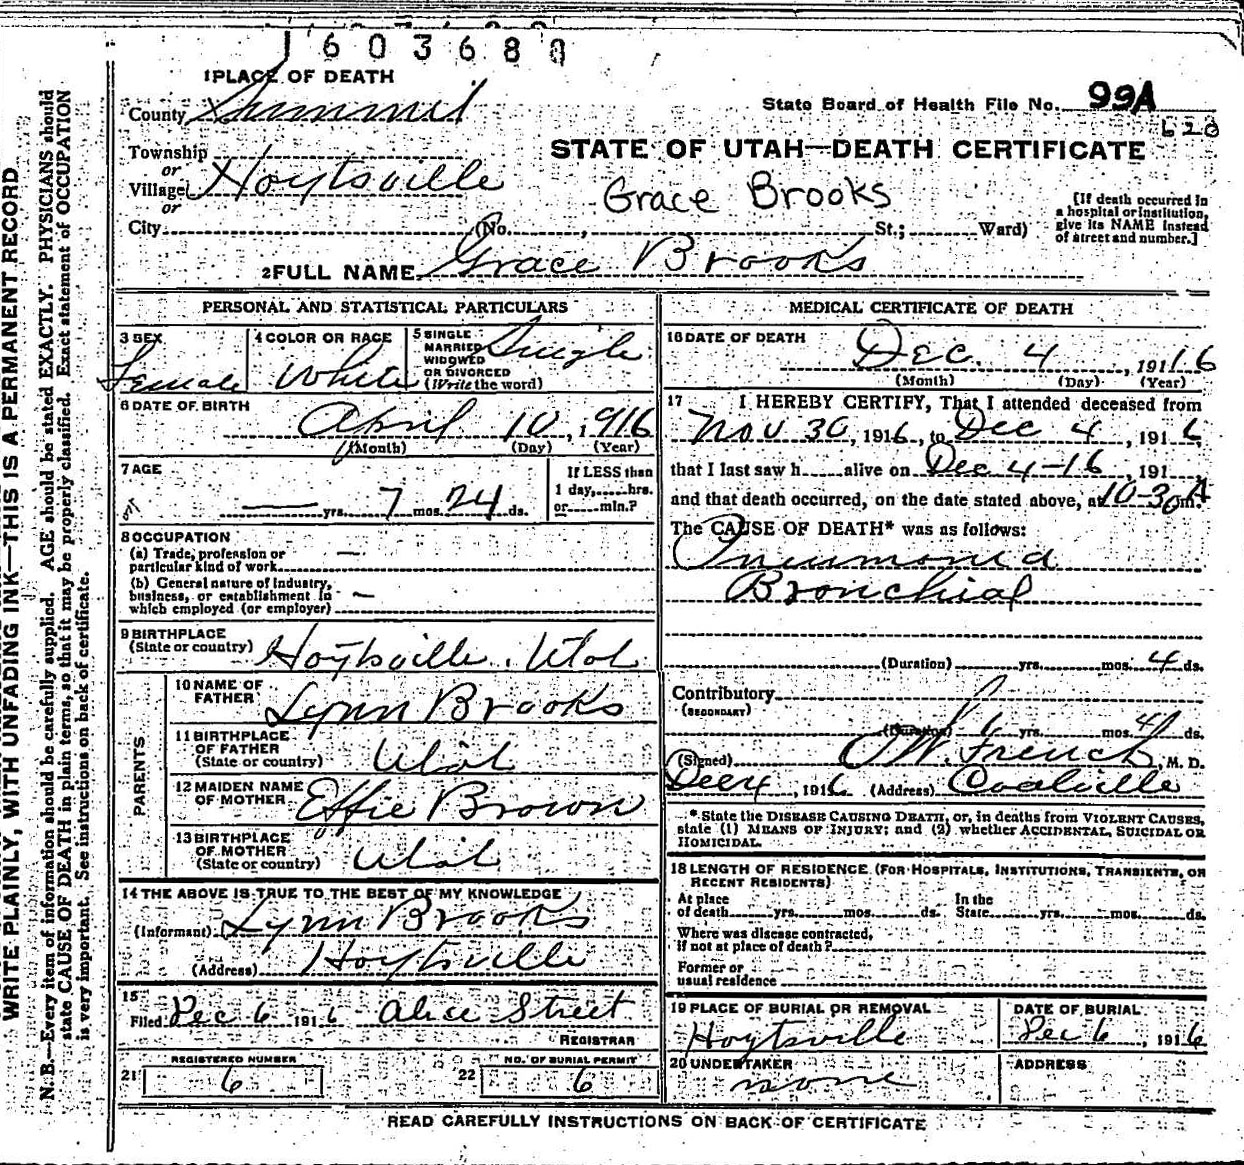 1603680
1 PLACE OF DEATH
County Summit
State Board of Health File No. 99A
620
Township
or
Village Hoytsville
or
City (No. , St.; Ward)
STATE OF UTAH—DEATH CERTIFICATE
Grace Brooks
[If death occurred in
a hospital or institution,
give its NAME instead
of street and number.]
2 FULL NAME Grace Brooks
PERSONAL AND STATISTICAL PARTICULARS
3 SEX
Female
4 COLOR OR RACE
White
5 SINGLE
MARRIED
WIDOWED
OR DIVORCED
(Write the word)
Single
6 DATE OF BIRTH
April 10, 1916
(Month) (Day) (Year)
7 AGE
— yrs. 7 mos. 24 ds.
If LESS than
1 day, hrs.
or min.?
8 OCCUPATION
(a) Trade, profession or
particular kind of work —
(b) General nature of industry,
business, or establishment in
which employed (or employer) —
9 BIRTHPLACE
(State or country) Hoytsville, Utah
PARENTS
10 NAME OF
FATHER Lynn Brooks
11 BIRTHPLACE
OF FATHER
(State or country) Utah
12 MAIDEN NAME
OF MOTHER Effie Brown
13 BIRTHPLACE
OF MOTHER
(State or country) Utah
14 THE ABOVE IS TRUE TO THE BEST OF MY KNOWLEDGE
(Informant) Lynn Brooks
(Address) Hoytsville
15
Filed Dec 6 1916 Alice Street
REGISTRAR
21 REGISTERED NUMBER
6
22 NO. OF BURIAL PERMIT
6
MEDICAL CERTIFICATE OF DEATH
16 DATE OF DEATH
Dec. 4, 19116
(Month) (Day) (Year)
17 I HEREBY CERTIFY, That I attended deceased from
Nov 30, 1916, to Dec 4, 1916,
that I last saw h alive on Dec 4-16, 191
and that death occurred, on the date stated above, at 10-30 A m.
The CAUSE OF DEATH* was as follows:
Pneumonia
Bronchial
(Duration) yrs. mos. 4 ds.
Contributory
(SECONDARY)
(Duration) yrs. mos. 4 ds.
(Signed) W. French, M. D.
Dec 4, 1916 (Address) Coalville
* State the DISEASE CAUSING DEATH, or, in deaths from VIOLENT CAUSES,
state (1) MEANS OF INJURY; and (2) whether ACCIDENTAL, SUICIDAL OR
HOMICIDAL.
18 LENGTH OF RESIDENCE (FOR HOSPITALS, INSTITUTIONS, TRANSIENTS, OR
RECENT RESIDENTS)
At place
of death yrs. mos. ds.
In the
State yrs. mos. ds.
Where was disease contracted,
if not at place of death?
Former or
usual residence
19 PLACE OF BURIAL OR REMOVAL
Hoytsville
DATE OF BURIAL
Dec 6, 1916
20 UNDERTAKER
none
ADDRESS
READ CAREFULLY INSTRUCTIONS ON BACK OF CERTIFICATE
WRITE PLAINLY, WITH UNFADING INK—THIS IS A PERMANENT RECORD
N. B.—Every item of information should be carefully supplied. AGE should be stated EXACTLY. PHYSICIANS should
state CAUSE OF DEATH in plain terms, so that it may be properly classified. Exact statement of OCCUPATION
is very important. See instructions on back of certificate.